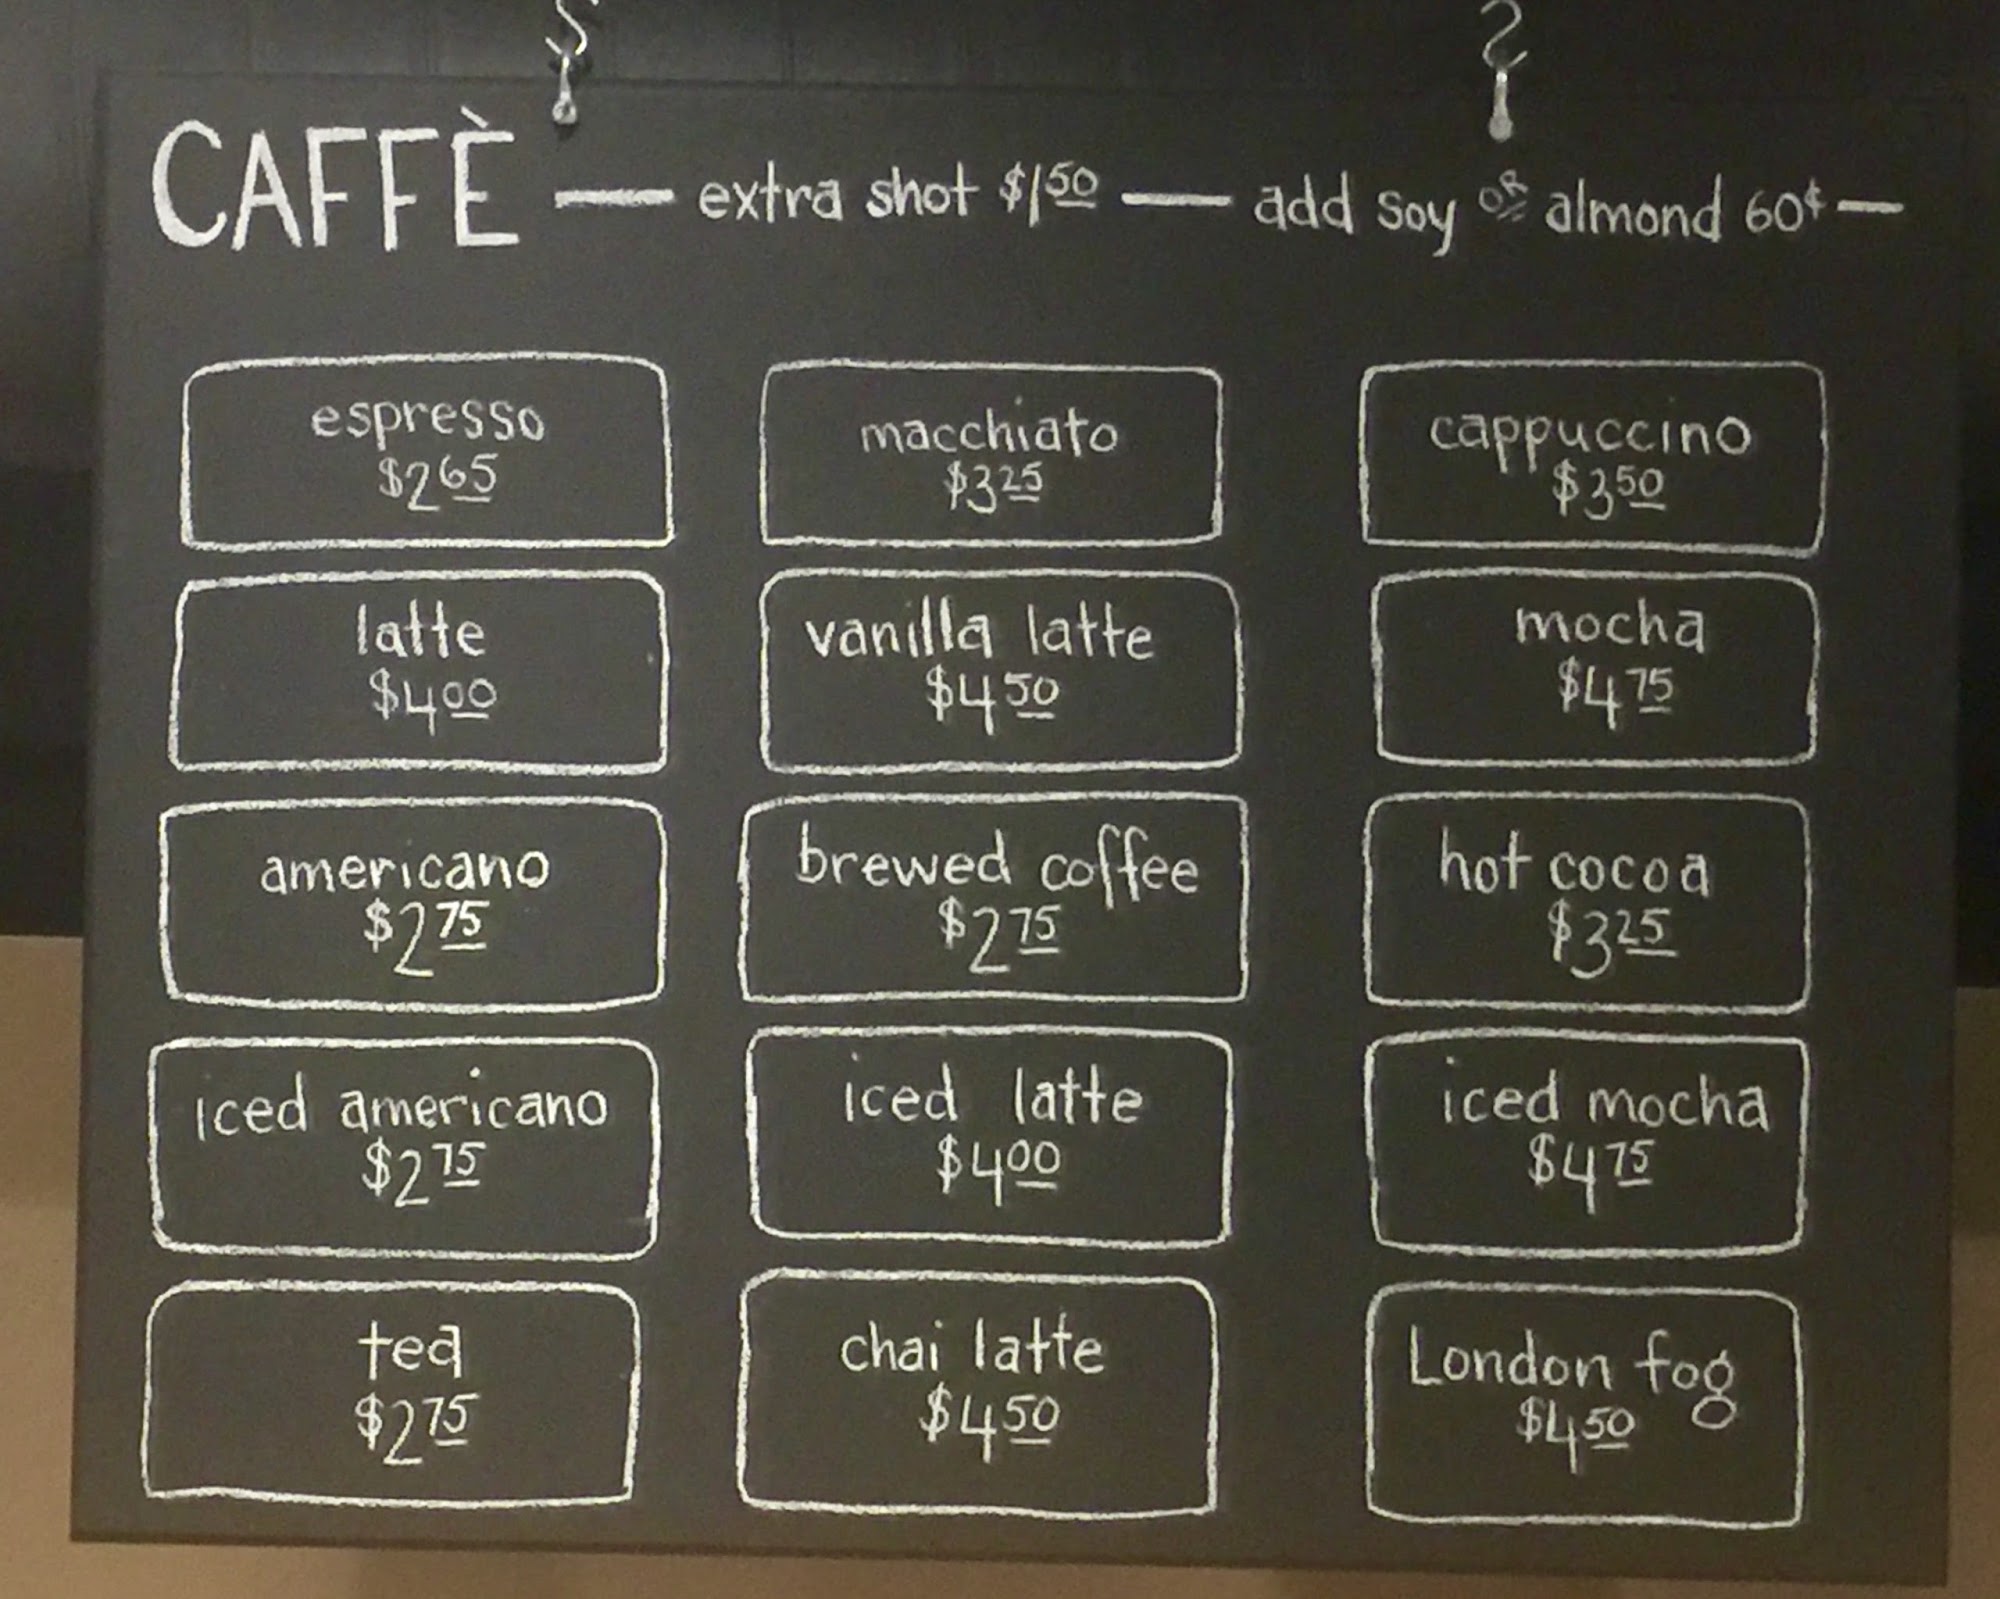 CAFFÈ — extra shot $1.50 — add soy OR almond 60¢ —
espresso
$2.65
macchiato
$3.25
cappuccino
$3.50
latte
$4.00
vanilla latte
$4.50
mocha
$4.75
americano
$2.75
brewed coffee
$2.75
hot cocoa
$3.25
iced americano
$2.75
iced latte
$4.00
iced mocha
$4.75
tea
$2.75
chai latte
$4.50
London fog
$4.50